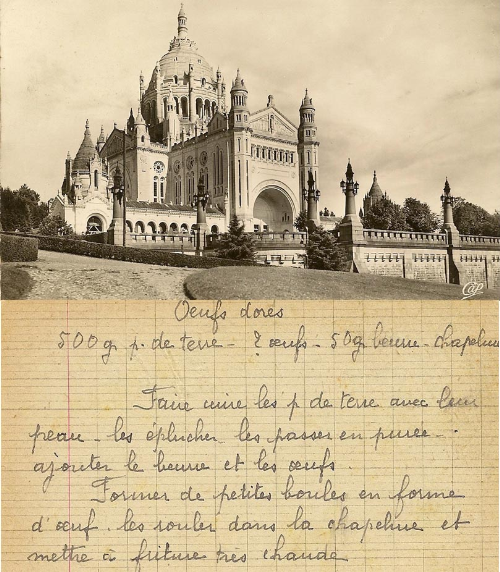 Cap
Oeufs dorés
500g p. de terre - 2 œufs - 50g beurre - chapelure
Faire cuire les p de terre avec leur
peau - les éplucher les passer en purée -
ajouter le beurre et les œufs.
Former de petites boules en forme
d'œuf. les rouler dans la chapelure et
mettre à friture très chaude